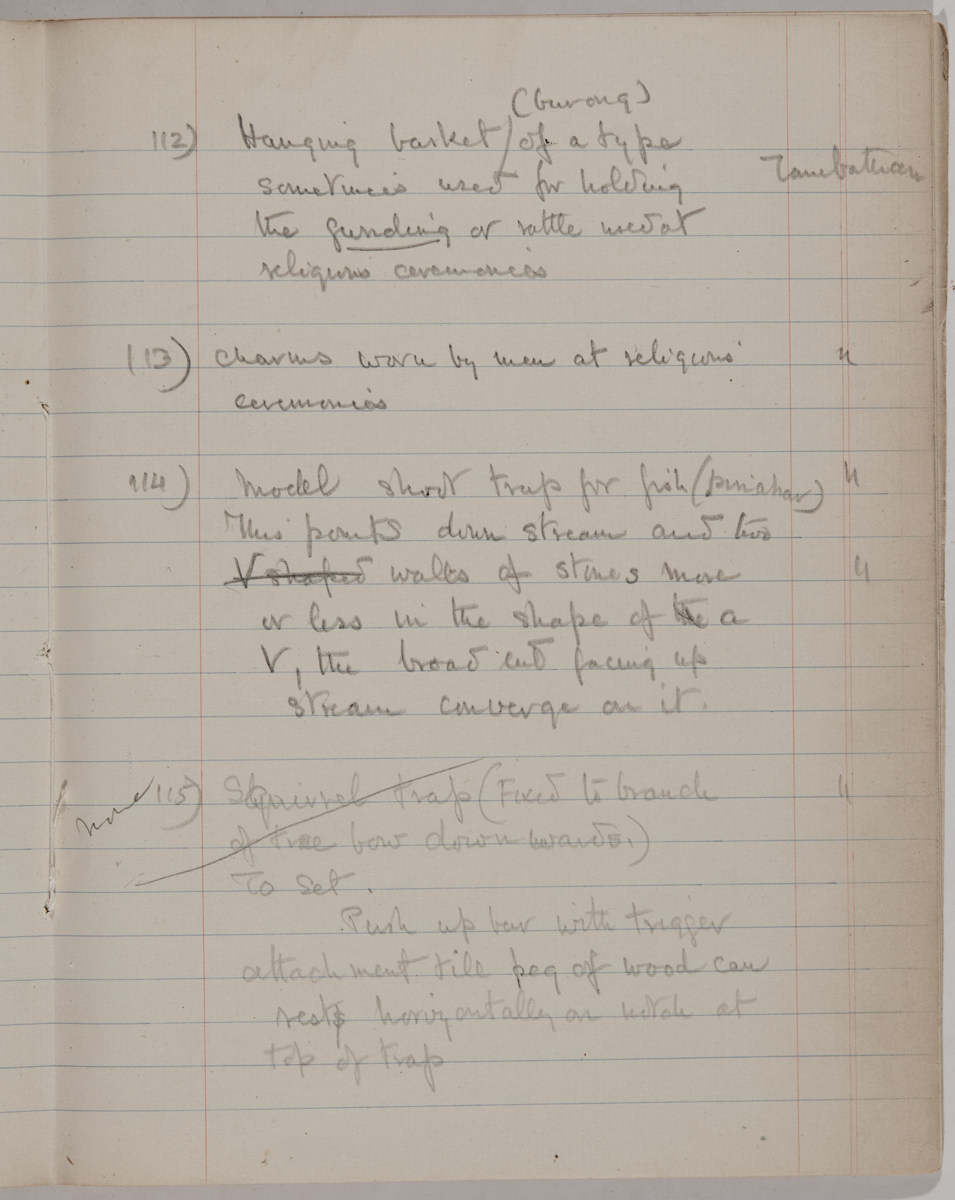 (burong)
112) Hanging basket / of a type
sometimes used for holding
Tambatuan
the gunding or rattle used at
religious ceremonies
113) Charms worn by men at religious "
ceremonies
114) Model short trap for fish ( "
This points down stream and two
V shaped walls of stones more "
or less in the shape of the a
V, the broad end facing up
stream converge on it.
none 115) Squirrel trap (Fixed to branch "
of tree bow downwards.)
To set.
Push up bar with trigger
attachment till peg of wood can
rest horizontally on notch at
top of trap